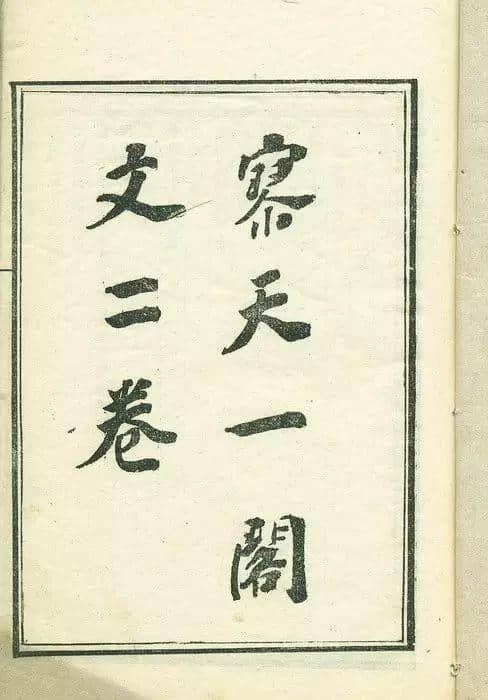 寥天一閣
文二卷